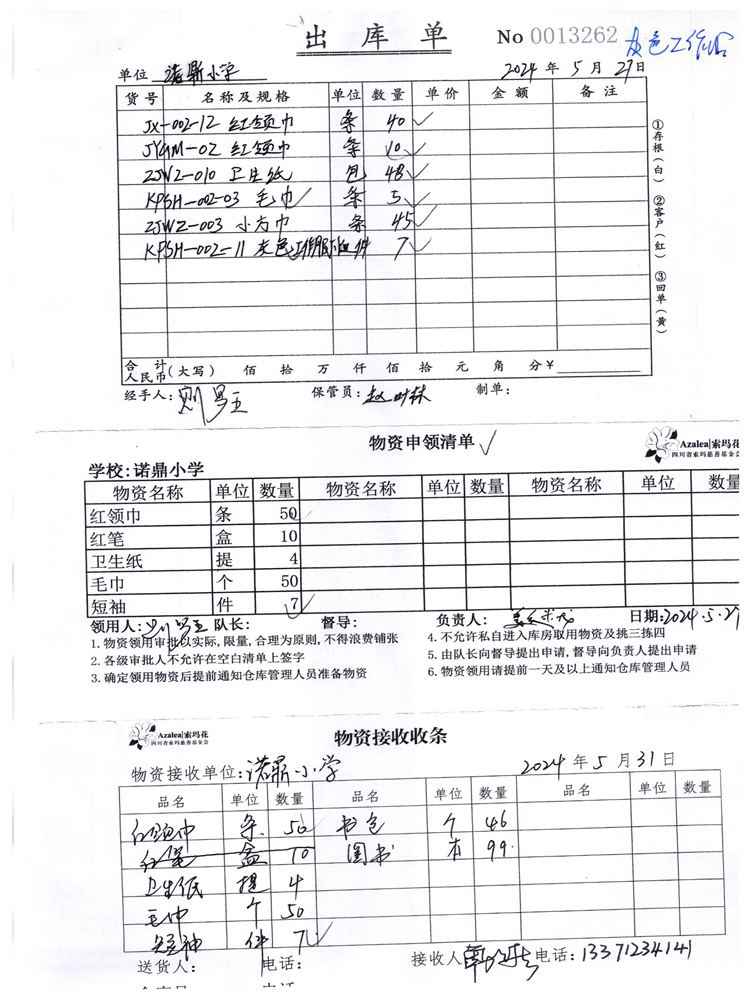 出库单 No 0013262 灰色工作服
单位 诺鼎小学 2024年5月27日
货号 名称及规格 单位 数量 单价 金额 备注
JX-002-12 红领巾 条 40
JYGM-02 红领巾 条 10
ZJWZ-010 卫生纸 包 48
KPSH-002-03 毛巾 条 5
ZJWZ-003 小方巾 条 45
KPSH-002-11 灰色工作服 件 7
①存根(白) ②客户(红) ③回单(黄)
合计人民币(大写) 佰 拾 万 仟 佰 拾 元 角 分¥
经手人: 保管员: 制单:
物资申领清单
Azalea|索玛花
四川省索玛慈善基金会
学校:诺鼎小学
物资名称 单位 数量 物资名称 单位 数量 物资名称 单位 数量
红领巾 条 50
红笔 盒 10
卫生纸 提 4
毛巾 个 50
短袖 件 7
领用人: 队长: 督导: 负责人: 日期:2024.5.27
1. 物资领用审批以实际,限量,合理为原则,不得浪费铺张
4. 不允许私自进入库房取用物资及挑三拣四
2. 各级审批人不允许在空白清单上签字
5. 由队长向督导提出申请,督导向负责人提出申请
3. 确定领用物资后提前通知仓库管理人员准备物资
6. 物资领用请提前一天及以上通知仓库管理人员
Azalea|索玛花
四川省索玛慈善基金会
物资接收收条
物资接收单位:诺鼎小学 2024年5月31日
品名 单位 数量 品名 单位 数量 品名 单位 数量
红领巾 条 50 书包 个 46
红笔 盒 10 图书 本 99
卫生纸 提 4
毛巾 个 50
短袖 件 7
送货人: 电话: 接收人 电话:13371234141